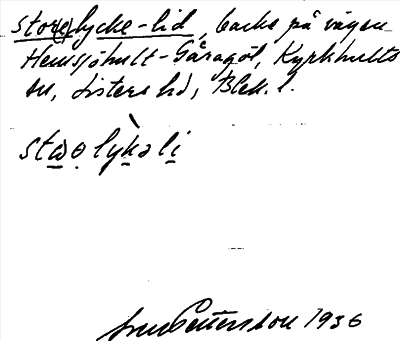 store lycke-lid, backe på vägen
Hemsjöhult-Gåragöl, Kyrkhults
sn, Listers hd, Blek. l.
Sven Pettersson 1936